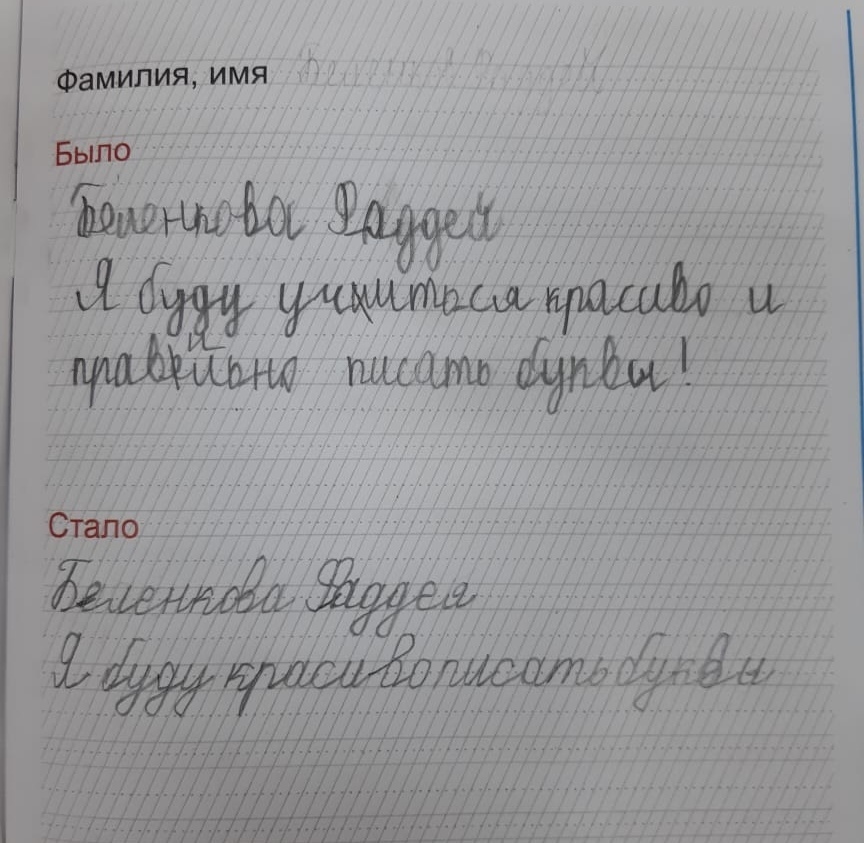 Фамилия, имя
Было
Беленкова Фаддея
Я буду учииться красиво и
правильно писать буквы!
Стало
Беленкова Фаддея
Я буду красиво писать буквы